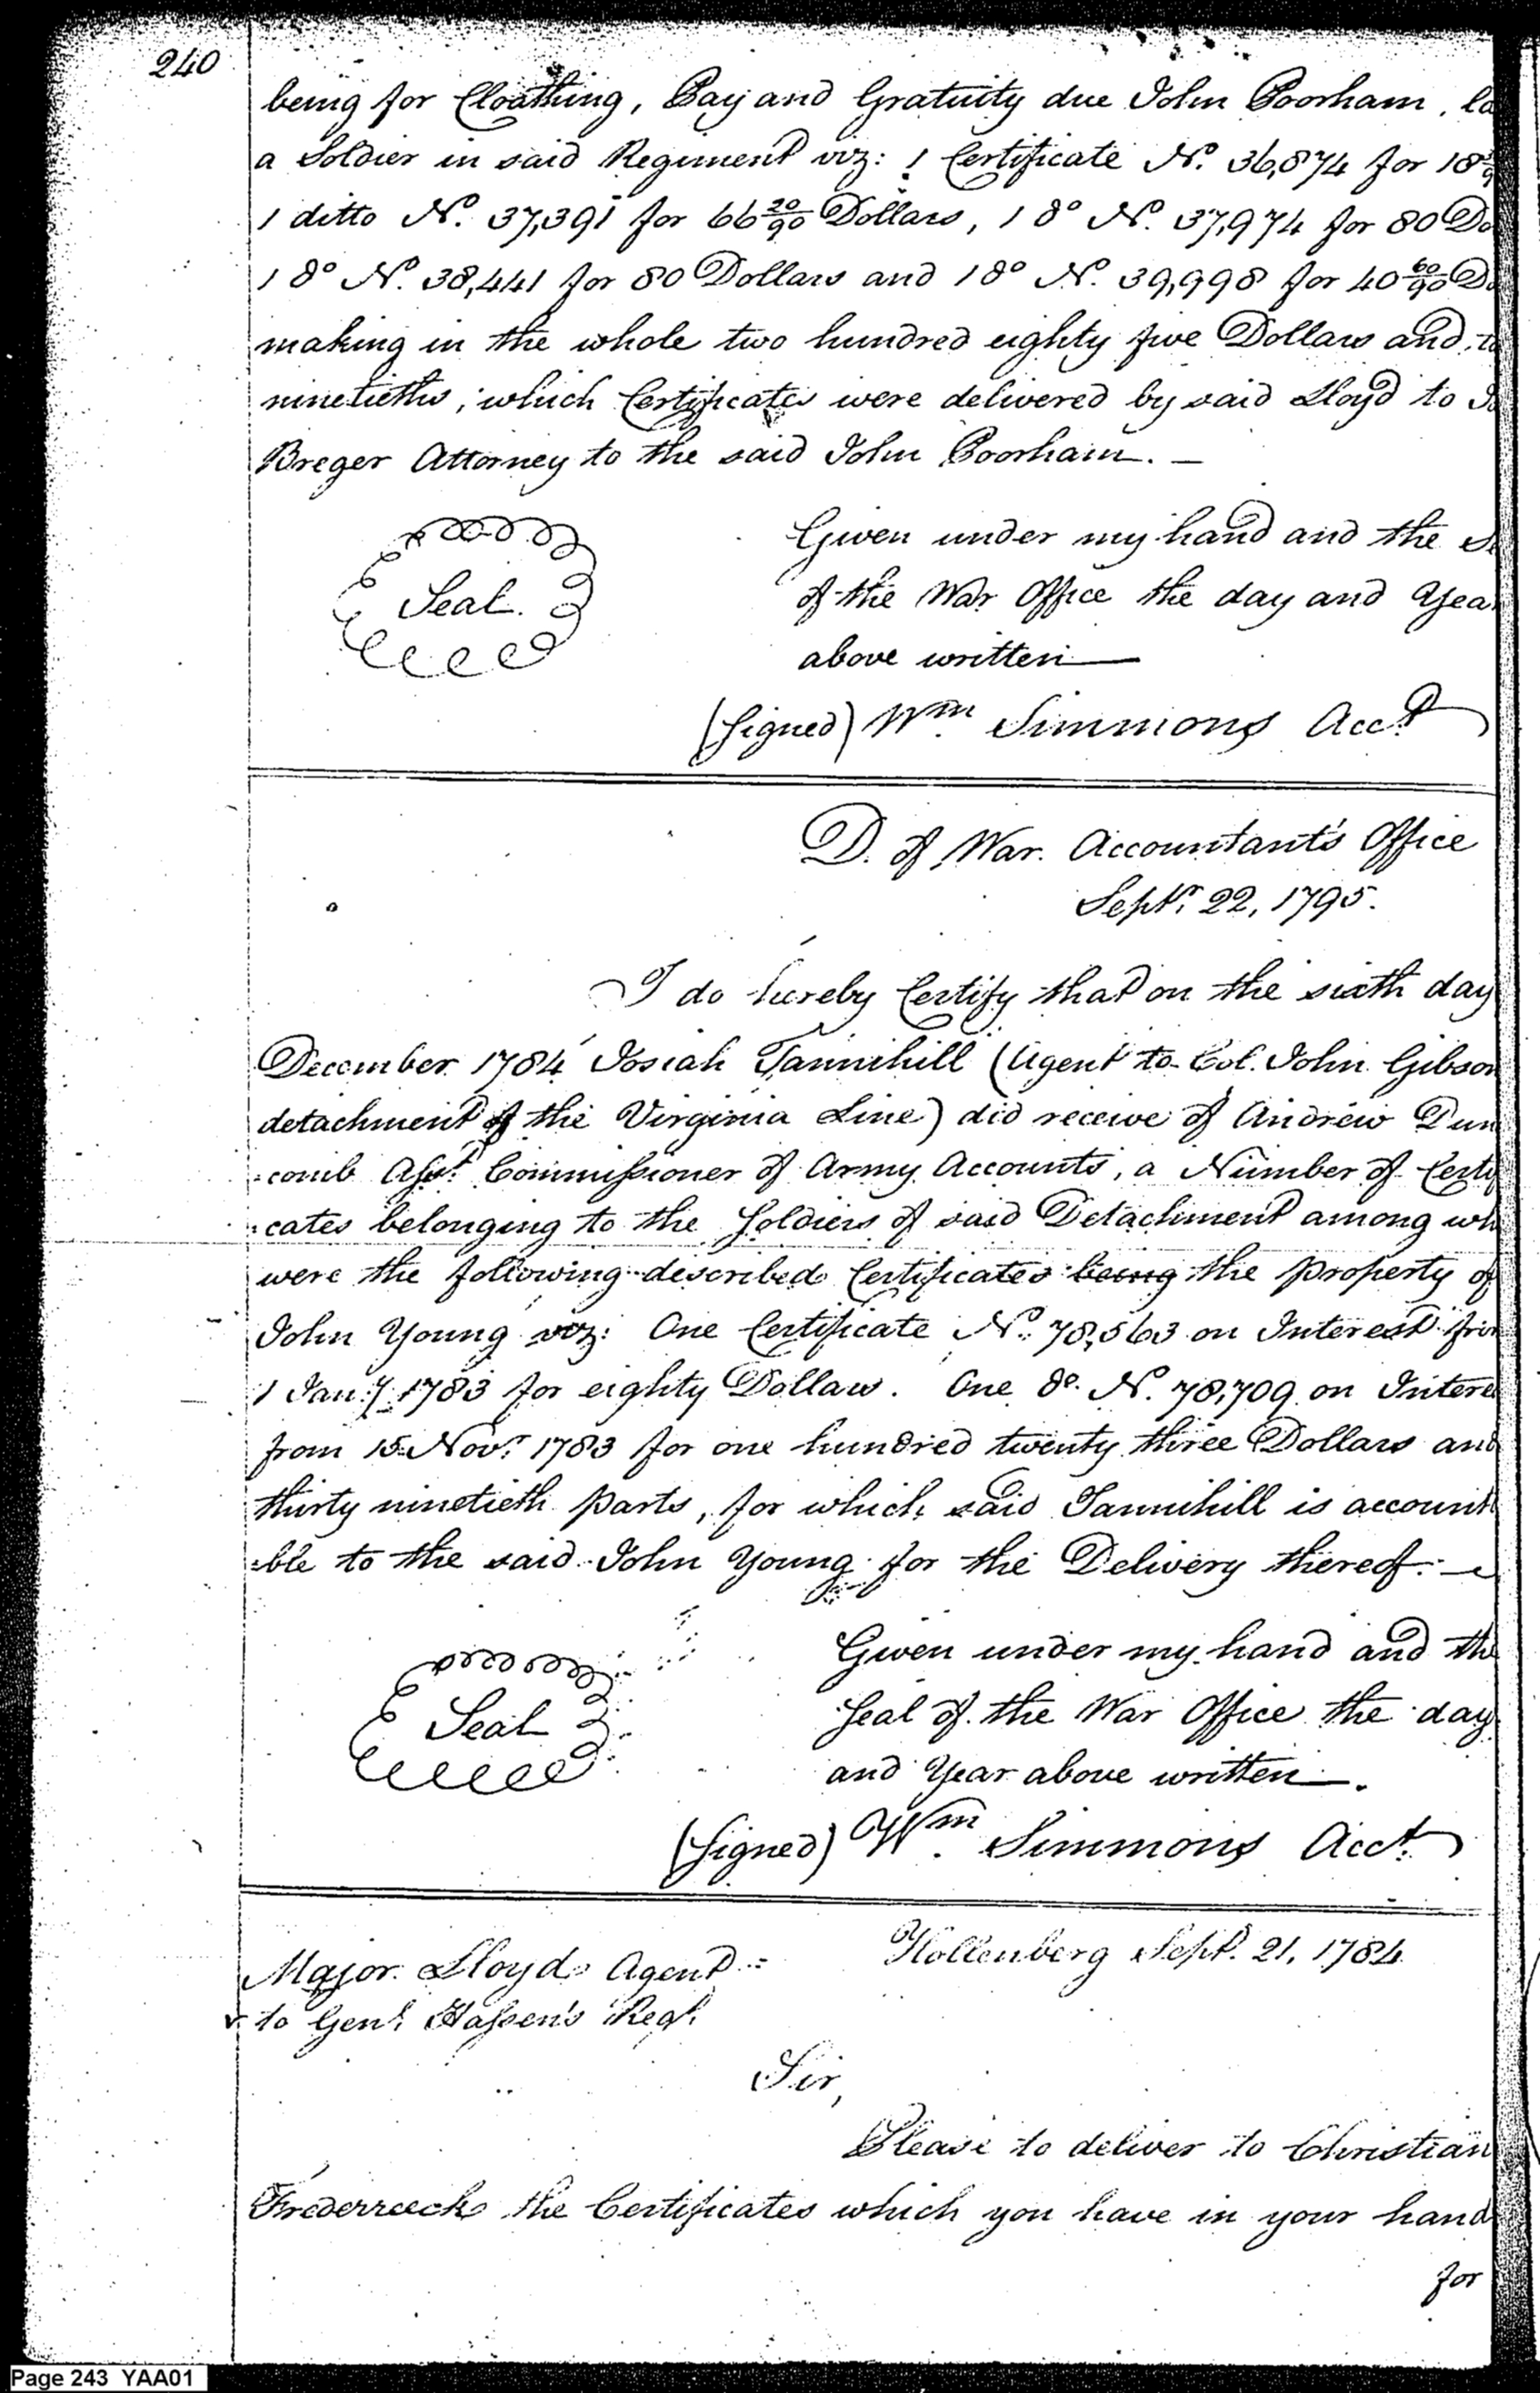 240
being for Cloathing, Pay and Gratuity due John Poorham, la
a Soldier in said Regiment viz: 1 Certificate No. 36,874 for 18
1 ditto No. 37,391 for 66 20/90 Dollars, 1 do No. 37,974 for 80 Do
1 do No. 38,441 for 80 Dollars and 1 do No. 39,998 for 40 60/90 D
making in the whole two hundred eighty five Dollars and
ninetieths, which Certificates were delivered by said Lloyd to
Breger Attorney to the said John Poorham. —
Given under my hand and the S
Seal.
of the War Office the day and Year
above written —
(Signed) Wm. Simmons Acct.
D. of War. Accountant's Office
Septr. 22, 1795.
I do hereby Certify that on the sixth day
December 1784 Josiah Tannihill (Agent to Col. John Gibson
detachment of the Virginia Line) did receive of Andrew Dun
=comb Asst. Commissioner of Army Accounts, a Number of Certif
=cates belonging to the Soldiers of said Detachment among wh
were the following described Certificates being the property of
John Young viz: One Certificate No. 78,563 on Interest fro
1 Jany. 1783 for eighty Dollars. One do. No. 78,709 on Intere
from 15 Novr. 1783 for one hundred twenty three Dollars and
thirty ninetieth parts, for which said Tannihill is account
=ble to the said John Young for the Delivery thereof. —
Given under my hand and the
Seal
Seal of the War Office the day
and Year above written —.
(Signed) Wm. Simmons Acct.
Major Lloyd Agent =
Hollenberg Sept. 21, 1784
to Genl. Hassen's Regt.
Sir,
Please to deliver to Christian
Frederreck the Certificates which you have in your hand
for
Page 243 YAA01